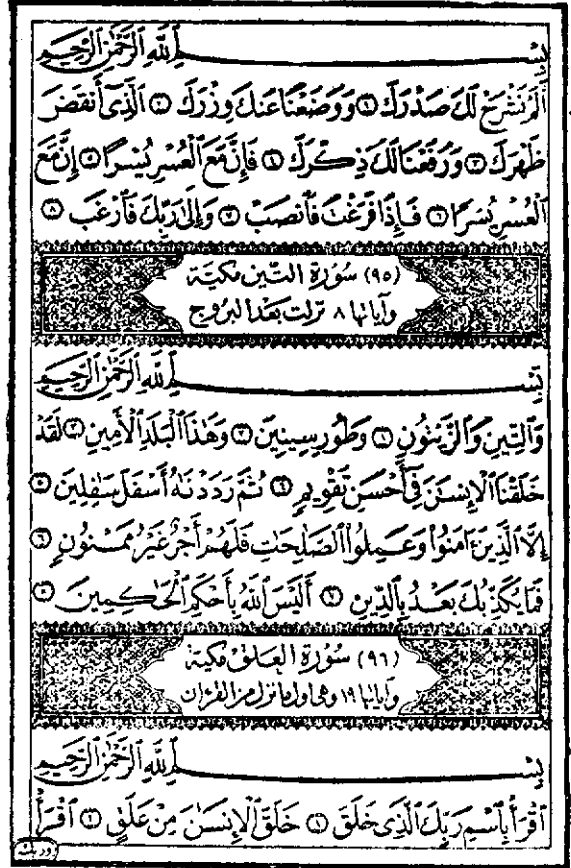 بِسْمِ ٱللَّهِ ٱلرَّحْمَٰنِ ٱلرَّحِيمِ
أَلَمْ نَشْرَحْ لَكَ صَدْرَكَ ١ وَوَضَعْنَا عَنكَ وِزْرَكَ ٢ ٱلَّذِىٓ أَنقَضَ
ظَهْرَكَ ٣ وَرَفَعْنَا لَكَ ذِكْرَكَ ٤ فَإِنَّ مَعَ ٱلْعُسْرِ يُسْرًا ٥ إِنَّ مَعَ
ٱلْعُسْرِ يُسْرًا ٦ فَإِذَا فَرَغْتَ فَٱنصَبْ ٧ وَإِلَىٰ رَبِّكَ فَٱرْغَب ٨
(٩٥) سُورَة التّين مَكيّة
وآياتها ٨ نزلت بَعْد البروج
بِسْمِ ٱللَّهِ ٱلرَّحْمَٰنِ ٱلرَّحِيمِ
وَٱلتِّينِ وَٱلزَّيْتُونِ ١ وَطُورِ سِينِينَ ٢ وَهَٰذَا ٱلْبَلَدِ ٱلْأَمِينِ ٣ لَقَدْ
خَلَقْنَا ٱلْإِنسَٰنَ فِىٓ أَحْسَنِ تَقْوِيمٍ ٤ ثُمَّ رَدَدْنَٰهُ أَسْفَلَ سَٰفِلِينَ ٥
إِلَّا ٱلَّذِينَ ءَامَنُوا۟ وَعَمِلُوا۟ ٱلصَّٰلِحَٰتِ فَلَهُمْ أَجْرٌ غَيْرُ مَمْنُونٍ ٦
فَمَا يُكَذِّبُكَ بَعْدُ بِٱلدِّينِ ٧ أَلَيْسَ ٱللَّهُ بِأَحْكَمِ ٱلْحَٰكِمِينَ ٨
(٩٦) سُورَة العَلق مَكية
وآياتها ١٩ وهى اول ما نزل من القرءان
بِسْمِ ٱللَّهِ ٱلرَّحْمَٰنِ ٱلرَّحِيمِ
ٱقْرَأْ بِٱسْمِ رَبِّكَ ٱلَّذِى خَلَقَ ١ خَلَقَ ٱلْإِنسَٰنَ مِنْ عَلَقٍ ٢ ٱقْرَأْ